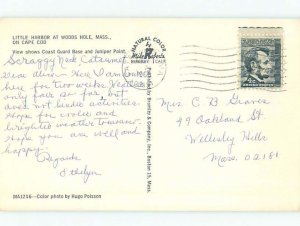 LITTLE HARBOR AT WOODS HOLE, MASS.
ON CAPE COD
View shows Coast Guard Base and Juniper Point.
NATURAL COLOR
Scraggy Neck Cataumet
Here I am
here for two weeks. Weather
only fair so far, but
does not hinder activities
Hope for cooler and
brighter weather tomorrow
Hope you are well and
happy.
Regards
Ethelyn
MA1216—Color photo by Hugo Poisson
& Company, Inc., Boston 15, Mass.
Mrs C B Graves
49 Oakland St
Wellesley Hills
Mass. 02181